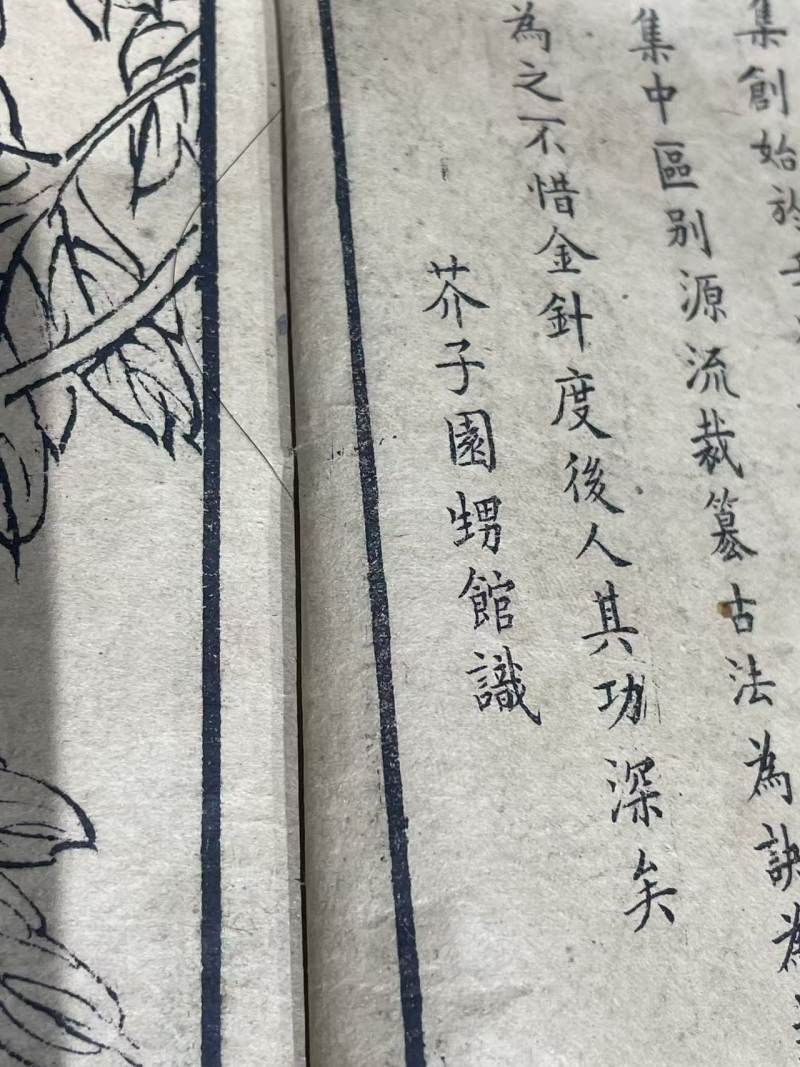 集創始於
集中區別源流裁纂古法為訣為
為之不惜金針度後人其功深矣
芥子園甥館識